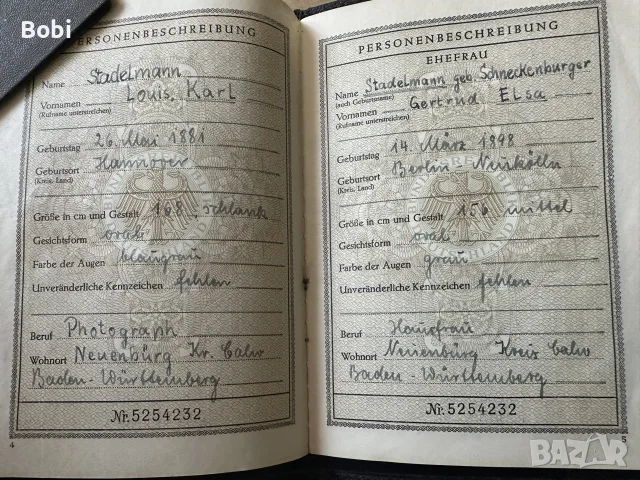 Bobi
PERSONENBESCHREIBUNG
Name Stadelmann
Vornamen Louis, Karl
(Rufname unterstreichen)
Geburtstag 26. Mai 1881
Geburtsort Hannover
(Kreis, Land)
Größe in cm und Gestalt 168, schlank
Gesichtsform oval
Farbe der Augen blaugrau
Unveränderliche Kennzeichen fehlen
Beruf Photograph
Wohnort Neuenbürg Kr. Calw
Baden-Württemberg
Nr. 5254232
4
PERSONENBESCHREIBUNG
EHEFRAU
Name Stadelmann geb. Schneckenburger
(auch Geburtsname)
Vornamen Gertrud Elsa
(Rufname unterstreichen)
Geburtstag 14. März 1898
Geburtsort Berlin Neukölln
(Kreis, Land)
Größe in cm und Gestalt 156 mittel
Gesichtsform oval
Farbe der Augen grau
Unveränderliche Kennzeichen fehlen
Beruf Hausfrau
Wohnort Neuenbürg Kreis Calw
Baden-Württemberg
Nr. 5254232
5
BAZAR